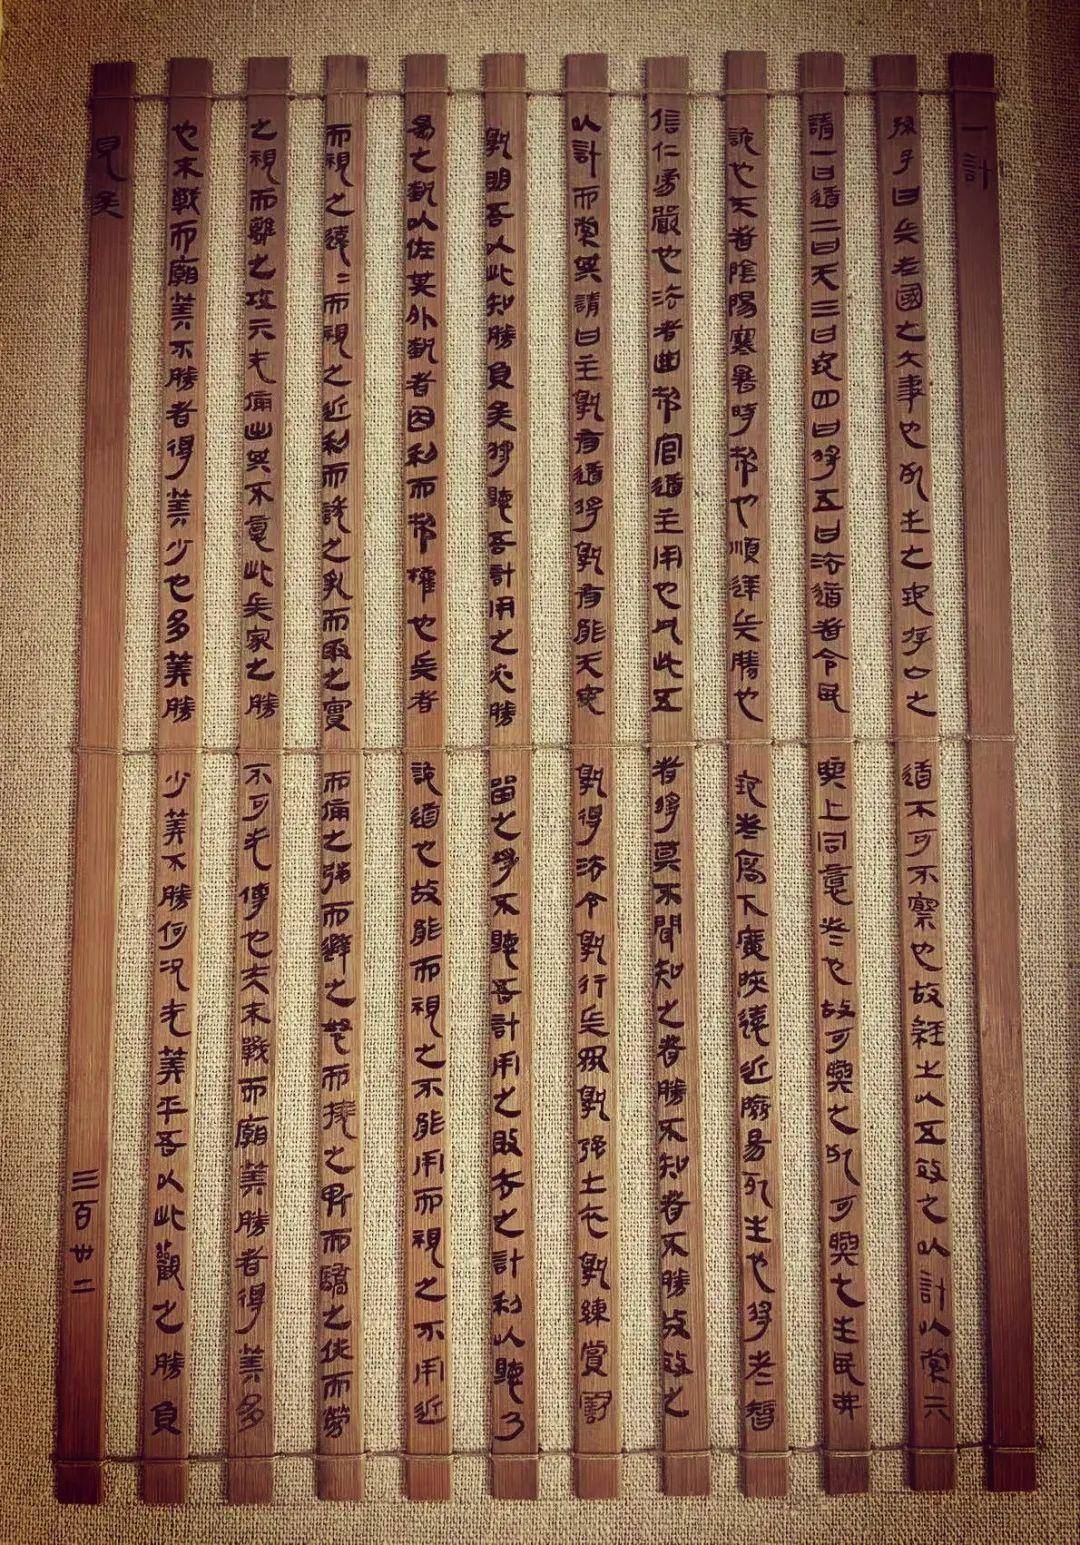 一計
孫子曰兵者國之大事也死生之地存亡之道不可不察也故經之以五效之以計以索亓
請一曰道二曰天三曰地四曰將五曰法道者令民與上同意者也故可與之死可與之生民弗
詭也天者陰陽寒暑時制也順逆兵勝也地者高下廣陜遠近險易死生也將者智
信仁勇嚴也法者曲制官道主用也凡此五者將莫不聞知之者勝不知者不勝故效之
以計而索其請曰主孰有道將孰有能天地孰得法令孰行兵衆孰强士卒孰練賞罰
孰明吾以此知勝負矣將聽吾計用之必勝留之將不聽吾計用之敗去之計利以聽乃
爲之埶以佐其外埶者因利而制權也兵者詭道也故能而視之不能用而視之不用近
而視之遠=而視之近利而誘之亂而取之實而備之強而避之怒而撓之卑而驕之佚而勞
之親而離之攻亓无備出其不意此兵家之勝不可先傳也夫未戰而廟筭勝者得筭多
也未戰而廟筭不勝者得筭少也多筭勝少筭不勝何況无筭乎吾以此觀之勝負
見矣 三百卅二